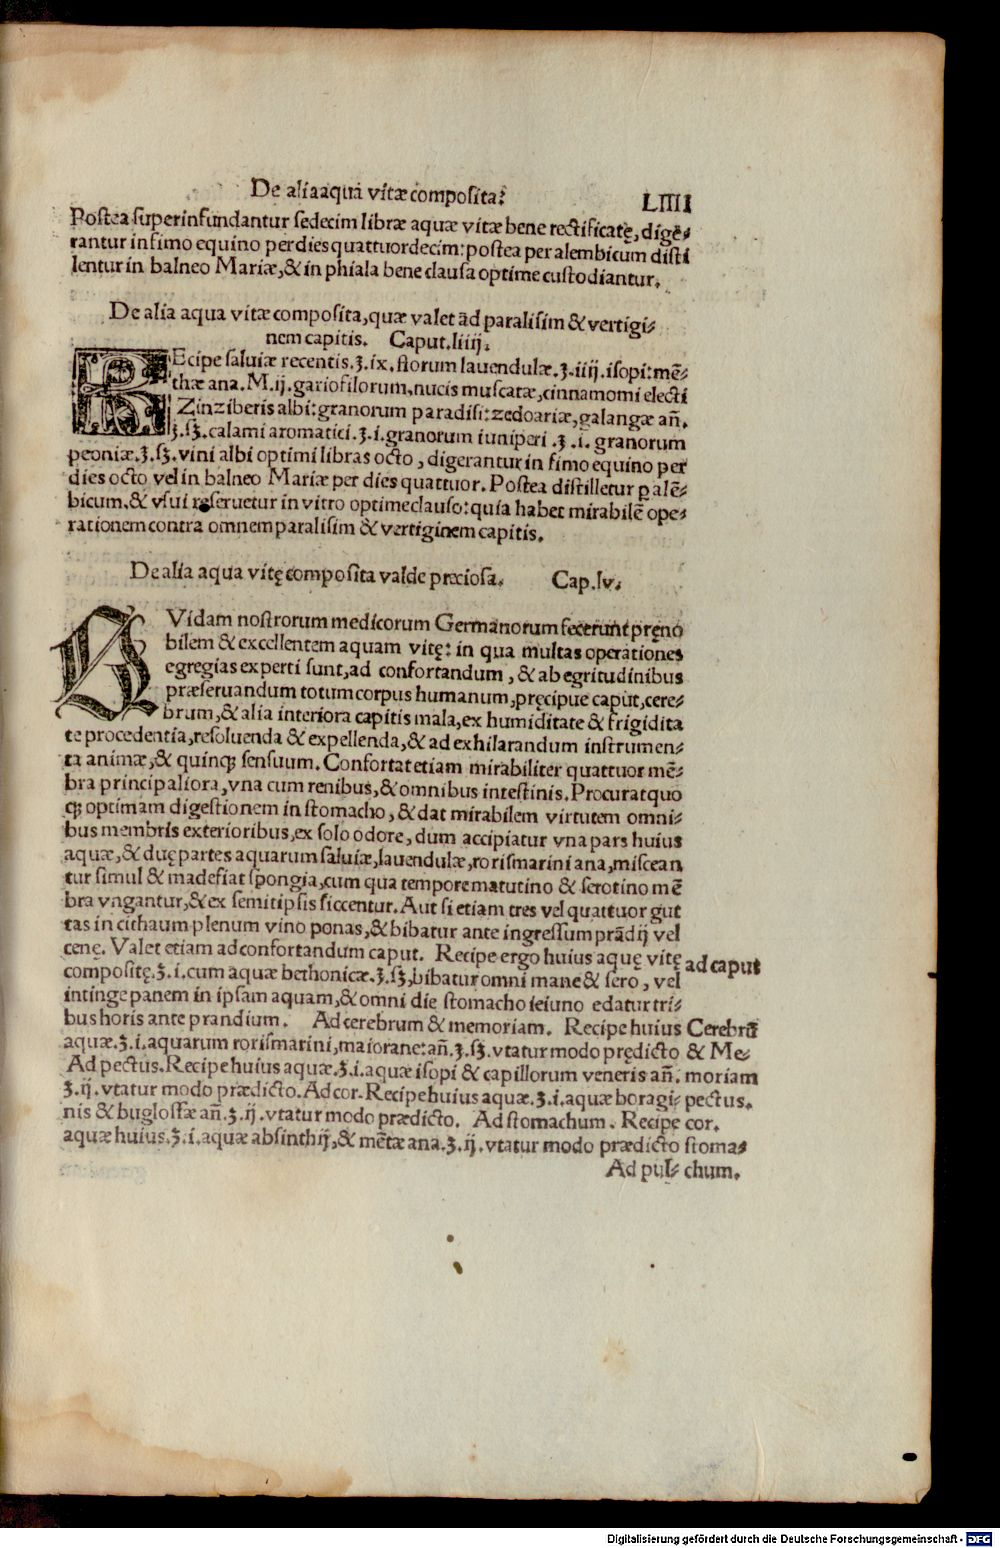 De alia aqua vitæ composita. LIIII
Postea superinfundantur sedecim libræ aquæ vitæ bene rectificatę, digē⸗
rantur in fimo equino per dies quattuordecim: postea per alembicum disti
lentur in balneo Mariæ, & in phiala bene clausa optime custodiantur.
De alia aqua vitæ composita, quæ valet ād paralisim & vertigi⸗
nem capitis. Caput.liiij.
REcipe saluiæ recentis.ʒ.ix. florum lauendulæ.ʒ.iiij.isopi: mē⸗
thæ ana. M.ij. gariofilorum, nucis muscatæ, cinnamomi electi
Zinziberis albi: granorum paradisi: zedoariæ, galangæ an̄.
ʒ.ſʒ. calami aromatici.ʒ.i. granorum iuniperi .ʒ.i. granorum
peoniæ.ʒ.ſʒ. vini albi optimi libras octo, digerantur in fimo equino per
dies octo vel in balneo Mariæ per dies quattuor. Postea distilletur p alē⸗
bicum. & vsui reseruetur in vitro optime clauso: quia habet mirabilē ope⸗
rationem contra omnem paralisim & vertiginem capitis.
De alia aqua vitę composita valde præciosa. Cap.lv.
QVidam nostrorum medicorum Germanorum fecerunt pręno
bilem & excellentem aquam vitę: in qua multas operationes
egregias experti sunt, ad confortandum, & ab egritudinibus
præseruandum totum corpus humanum, pręcipue caput, cere⸗
brum, & alia interiora capitis mala, ex humiditate & frigidita
te procedentia, resoluenda & expellenda, & ad exhilarandum instrumen⸗
ta animæ, & quinqꝫ sensuum. Confortat etiam mirabiliter quattuor mē⸗
bra principaliora, vna cum renibus, & omnibus intestinis. Procurat quo
qꝫ optimam digestionem in stomacho, & dat mirabilem virtutem omni⸗
bus membris exterioribus, ex solo odore, dum accipiatur vna pars huius
aquæ, & duę partes aquarum saluiæ, lauendulæ, rorismarini ana, miscean
tur simul & madefiat spongia, cum qua tempore matutino & serotino mē
bra vngantur, & ex semitipsis siccentur. Aut si etiam tres vel quattuor gut
tas in cithaum plenum vino ponas, & bibatur ante ingressum prādij vel
cenę. Valet etiam ad confortandum caput. Recipe ergo huius aquę vitę ad caput
compositę.ʒ.i. cum aquæ bethonicæ.ʒ.ſʒ, bibatur omni mane & sero, vel
intinge panem in ipsam aquam, & omni die stomacho ieiuno edatur tri⸗
bus horis ante prandium. Ad cerebrum & memoriam. Recipe huius Cerebrū
aquæ.ʒ.i. aquarum rorismarini, maiorane: an̄.ʒ.ſʒ. vtatur modo prędicto & Me⸗
Ad pectus. Recipe huius aquæ.ʒ.i. aquæ isopi & capillorum veneris an̄. moriam
ʒ.ij. vtatur modo prædicto. Ad cor. Recipe huius aquæ.ʒ.i. aquæ boragi⸗ pectus.
nis & buglossæ an̄.ʒ.ij. vtatur modo prædicto. Ad stomachum. Recipe cor.
aquæ huius.ʒ.i. aquæ absinthij, & mētæ ana.ʒ.ij. vtatur modo prædicto stoma⸗
Ad pul⸗ chum.
Digitalisierung gefördert durch die Deutsche Forschungsgemeinschaft - DFG